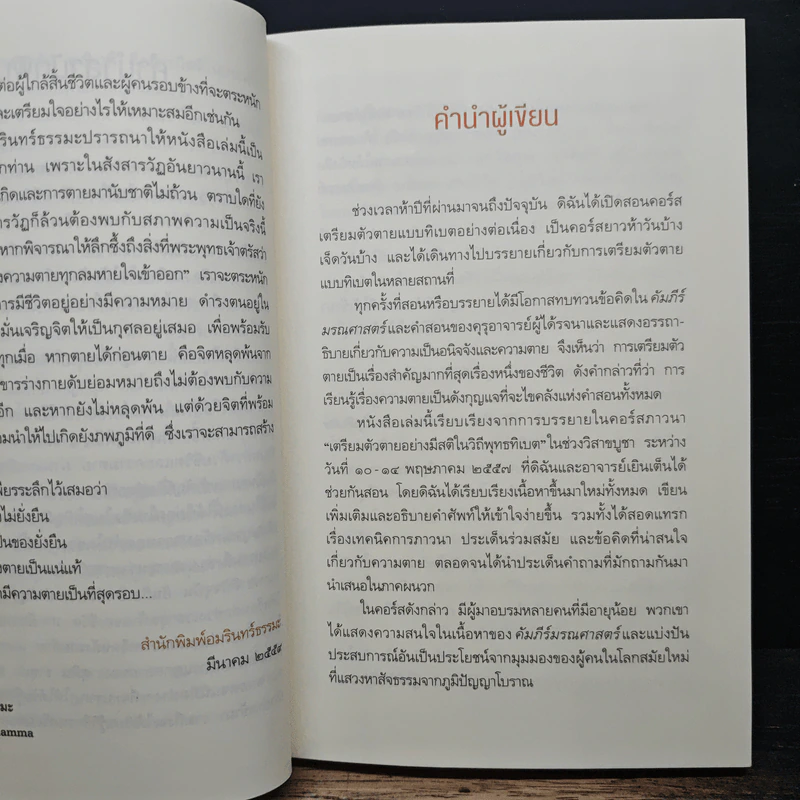 ต่อผู้ใกล้สิ้นชีวิตและผู้คนรอบข้างที่จะตระหนัก
ละเตรียมใจอย่างไรให้เหมาะสมอีกเช่นกัน
รินทร์ธรรมะปรารถนาให้หนังสือเล่มนี้เป็น
กท่าน เพราะในสังสารวัฏอันยาวนานนี้ เรา
กิดและการตายมานับชาติไม่ถ้วน ตราบใดที่ยัง
ารวัฏก็ล้วนต้องพบกับสภาพความเป็นจริงนี้
หากพิจารณาให้ลึกซึ้งถึงสิ่งที่พระพุทธเจ้าตรัสว่า
งความตายทุกลมหายใจเข้าออก” เราจะตระหนัก
ารมีชีวิตอยู่อย่างมีความหมาย ดำรงตนอยู่ใน
มั่นเจริญจิตให้เป็นกุศลอยู่เสมอ เพื่อพร้อมรับ
ทุกเมื่อ หากตายได้ก่อนตาย คือจิตหลุดพ้นจาก
ขารร่างกายดับย่อมหมายถึงไม่ต้องพบกับความ
อีก และหากยังไม่หลุดพ้น แต่ด้วยจิตที่พร้อม
อมนำให้ไปเกิดยังภพภูมิที่ดี ซึ่งเราจะสามารถสร้าง
พียรระลึกไว้เสมอว่า
ไม่ยั่งยืน
ป็นของยั่งยืน
งตายเป็นแน่แท้
ามีความตายเป็นที่สุดรอบ...
สำนักพิมพ์อมรินทร์ธรรมะ
มีนาคม ๒๕๕๙
มะ
amma
คำนำผู้เขียน
ช่วงเวลาห้าปีที่ผ่านมาจนถึงปัจจุบัน ดิฉันได้เปิดสอนคอร์ส
เตรียมตัวตายแบบทิเบตอย่างต่อเนื่อง เป็นคอร์สยาวห้าวันบ้าง
เจ็ดวันบ้าง และได้เดินทางไปบรรยายเกี่ยวกับการเตรียมตัวตาย
แบบทิเบตในหลายสถานที่
ทุกครั้งที่สอนหรือบรรยายได้มีโอกาสทบทวนข้อคิดใน คัมภีร์
มรณศาสตร์ และคำสอนของคุรุอาจารย์ผู้ได้รจนาและแสดงอรรถา-
ธิบายเกี่ยวกับความเป็นอนิจจังและความตาย จึงเห็นว่า การเตรียมตัว
ตายเป็นเรื่องสำคัญมากที่สุดเรื่องหนึ่งของชีวิต ดังคำกล่าวที่ว่า การ
เรียนรู้เรื่องความตายเป็นดังกุญแจที่จะไขคลังแห่งคำสอนทั้งหมด
หนังสือเล่มนี้เรียบเรียงจากการบรรยายในคอร์สภาวนา
“เตรียมตัวตายอย่างมีสติในวิถีพุทธทิเบต” ในช่วงวิสาขบูชา ระหว่าง
วันที่ ๑๐-๑๔ พฤษภาคม ๒๕๕๗ ที่ดิฉันและอาจารย์เยินเต็นได้
ช่วยกันสอน โดยดิฉันได้เรียบเรียงเนื้อหาขึ้นมาใหม่ทั้งหมด เขียน
เพิ่มเติมและอธิบายคำศัพท์ให้เข้าใจง่ายขึ้น รวมทั้งได้สอดแทรก
เรื่องเทคนิคการภาวนา ประเด็นร่วมสมัย และข้อคิดที่น่าสนใจ
เกี่ยวกับความตาย ตลอดจนได้นำประเด็นคำถามที่มักถามกันมา
นำเสนอในภาคผนวก
ในคอร์สดังกล่าว มีผู้มาอบรมหลายคนที่มีอายุน้อย พวกเขา
ได้แสดงความสนใจในเนื้อหาของ คัมภีร์มรณศาสตร์ และแบ่งปัน
ประสบการณ์อันเป็นประโยชน์จากมุมมองของผู้คนในโลกสมัยใหม่
ที่แสวงหาสัจธรรมจากภูมิปัญญาโบราณ